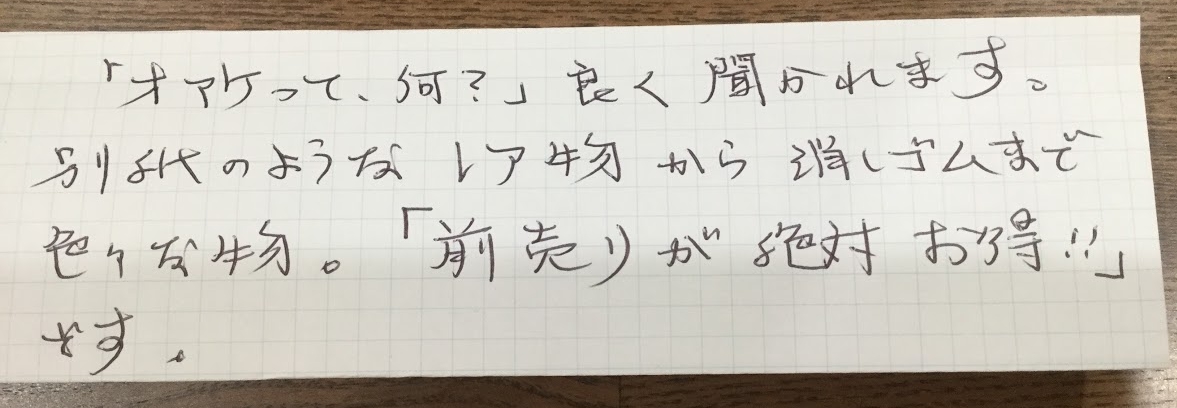 「オマケって、何?」良く聞かれます。
別紙のようなレア物から消しゴムまで
色々な物。「前売りが絶対お得!!」
です。